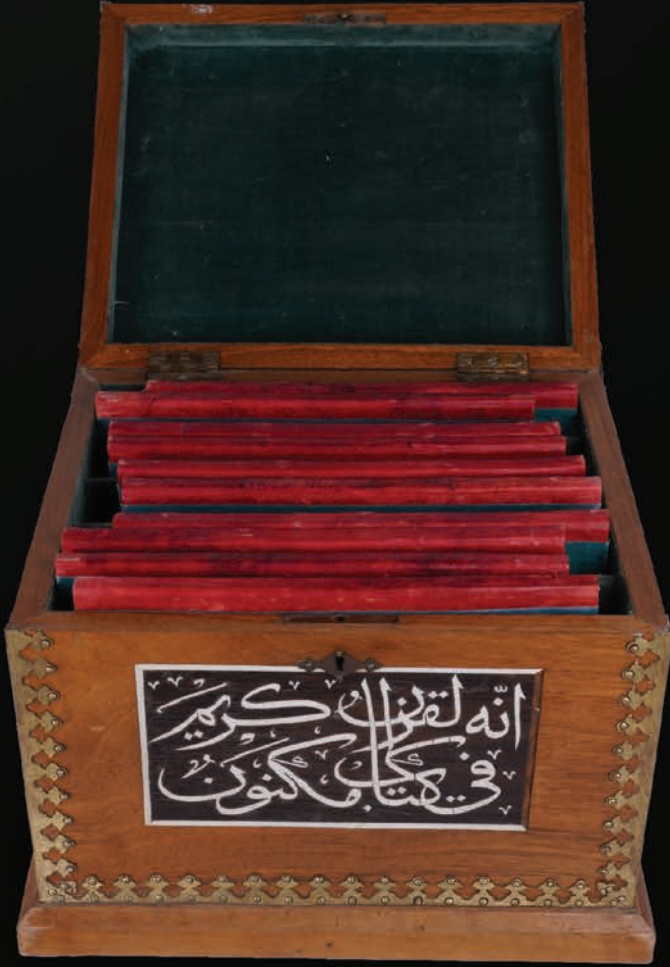 انّه لقرآن كريم
في كتاب مكنون